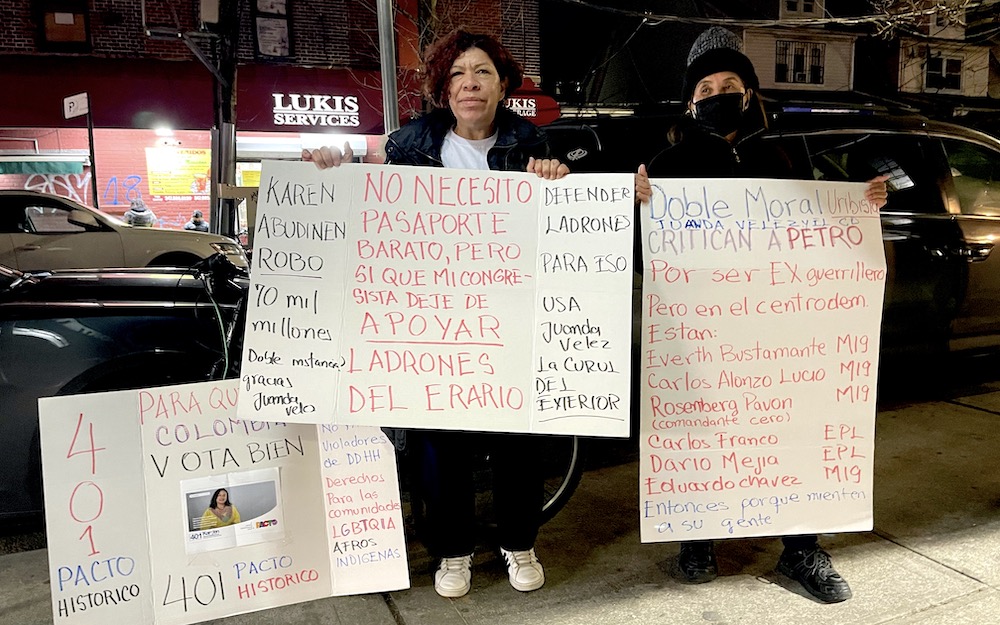 LUKIS
SERVICES
LUKIS
P
KAREN
ABUDINEN
ROBO
70 mil
millones
Doble instancia
gracias
Juanda Velez
NO NECESITO
PASAPORTE
BARATO, PERO
SI QUE MI CONGRE-
SISTA DEJE DE
APOYAR
LADRONES
DEL ERARIO
DEFENDER
LADRONES
PARA ESO
USA
Juanda
Velez
La CURUL
DEL
EXTERIOR
Doble Moral Uribista
CRITICAN A PETRO
Por ser EX guerrillero
Pero en el centro dem.
Estan:
Everth Bustamante M19
Carlos Alonzo Lucio M19
Rosenberg Pavon M19
(comandante cero)
Carlos Franco EPL
Dario Mejia EPL
Eduardo chavez M19
Entonces porque mienten
a su gente
401
PACTO
HISTORICO
PARA QUE
COLOMBIA
VOTA BIEN
401
PACTO
401 PACTO
HISTORICO
violadores
de DDHH
Derechos
Para las
comunidades
LGBTQIA
AFROS
INDIGENAS